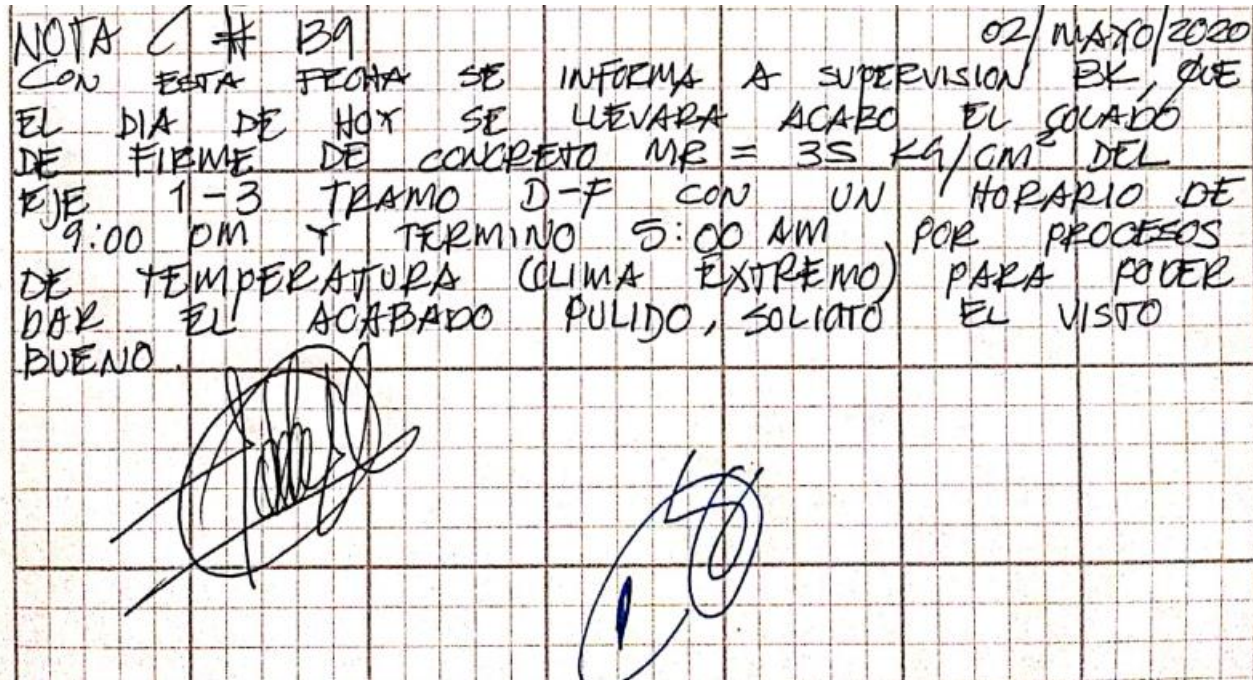 NOTA C # 139 02/MAYO/2020
CON ESTA FECHA SE INFORMA A SUPERVISION BK, QUE
EL DIA DE HOY SE LLEVARA ACABO EL COLADO
DE FIRME DE CONCRETO MR = 35 KG/CM² DEL
EJE 1-3 TRAMO D-F CON UN HORARIO DE
9:00 PM Y TERMINO 5:00 AM POR PROCESOS
DE TEMPERATURA (CLIMA EXTREMO) PARA PODER
DAR EL ACABADO PULIDO, SOLICITO EL VISTO
BUENO.